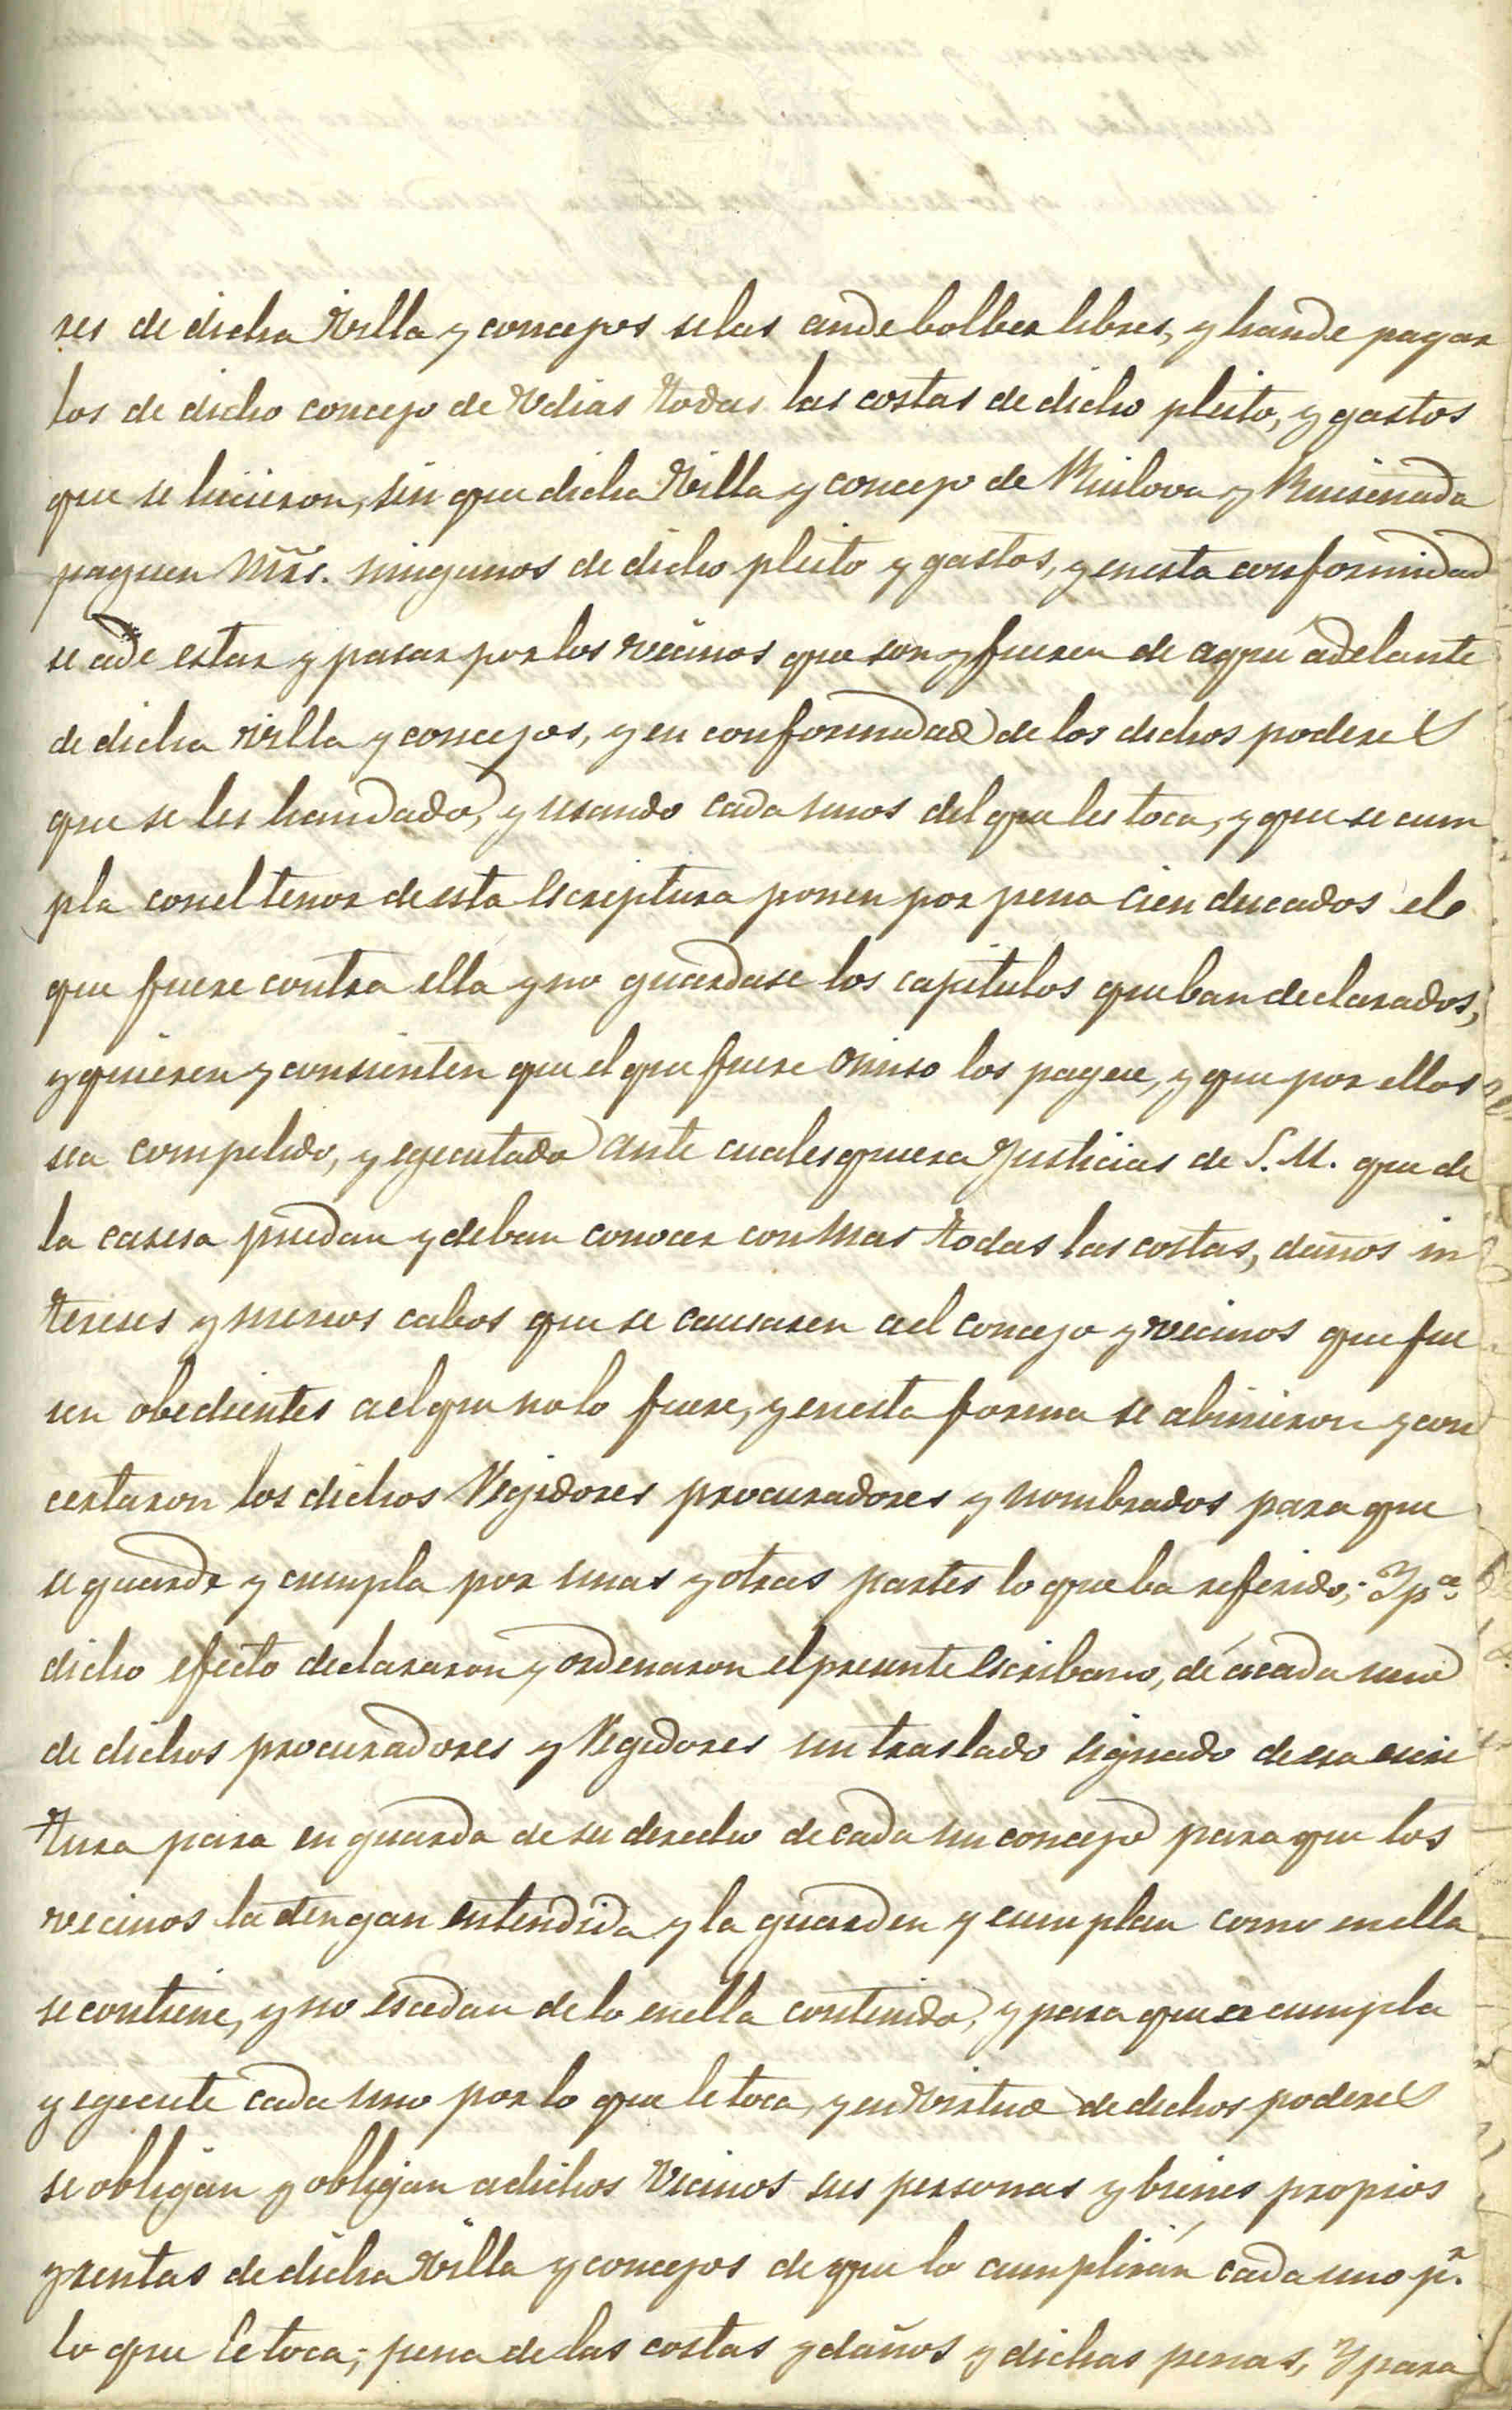 res de dicha Villa y concejos selas ande bolber libres, y hande pagar
los de dicho concejo de Udias todas las costas de dicho pleito, y gastos
que se hicieron, sin que dicha Villa y concejo de Ruilova y Ruisenada
paguen Mrs. ningunos de dicho pleito y gastos, y enesta conformidad
se ade estar y pasar por los vecinos que son y fueren de aquí adelante
de dicha villa y concejos, y en conformidad de los dichos poderes
que se les handado, y usando cada unos del que les toca, y que se cum
pla conel tenor de esta escriptura ponen por pena cien ducados el
que fuere contra ella y no guardase los capitulos que ban declarados,
y quieren y consienten que el que fuere omiso los pague, y que por ellos
sea compelido, y egecutado ante cualesquiera Justicias de S. M. que de
la causa puedan y deban conocer con mas todas las costas, daños in
tereses y menos cabos que se causaren ael concejo y vecinos que fue
sen obedientes ael que nolo fuere, y enesta forma se abinieron y con
certaron los dichos Regidores procuradores y nombrados para que
se guarde y cumpla por unas y otras partes lo que ba referido; Y pa.
dicho efecto declararon y ordenaron el presente escribano, dé acada uno
de dichos procuradores y Regidores un traslado signado de esa escri
tura para en guarda de su derecho de cada un concejo para que los
vecinos la tengan entendida y la guarden y cumplan como enella
se contiene, y no escedan de lo enella contenido, y para que se cumpla
y egecute cada uno por lo que le toca, y en virtud de dichos poderes
se obligan y obligan adichos Vecinos sus personas y bienes propios
y rentas de dicha Villa y concejos de que lo cumplirán cada uno pr.
lo que le toca; pena de las costas y daños y dichas penas, Y para